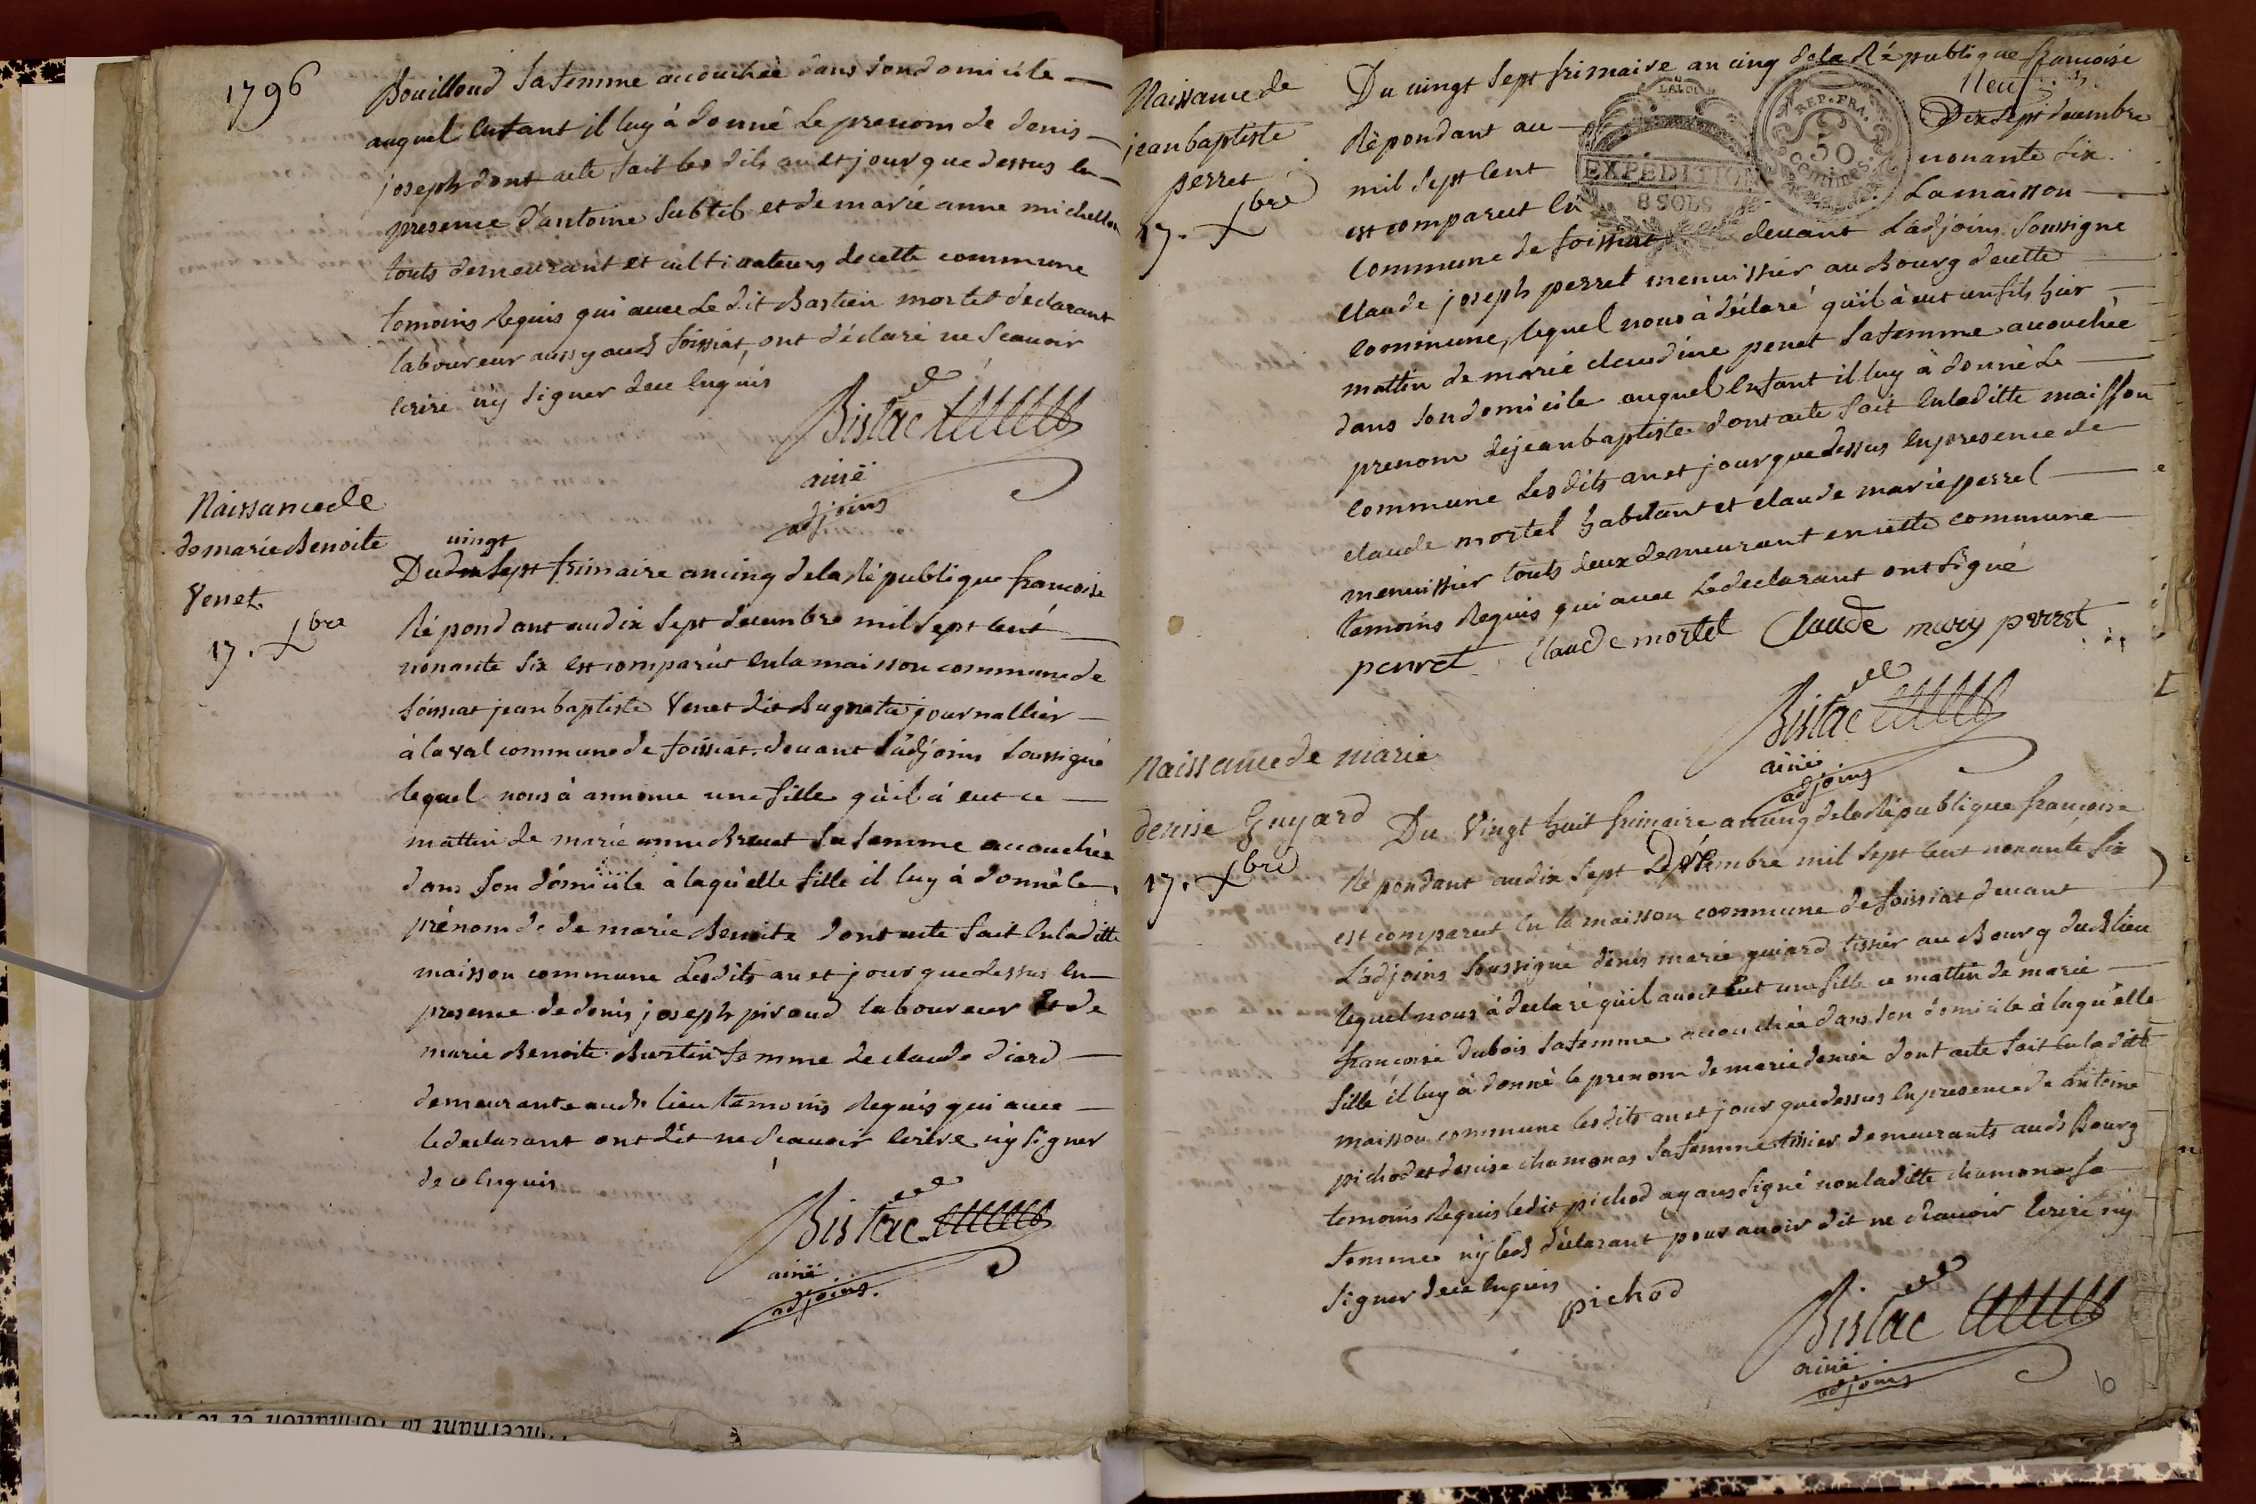 1796
Bouilloud sa femme accouchée dans son domicile
auquel enfant il luy à donné le prenom de denis
joseph dont acte fait les dits an et jour que dessus en
presence d'antoine subtil et de marie anne michellon
touts demeurant et cultivateurs de cette commune
temoins requis qui avec le dit Bastien mortel declarant
laboureur aussy aud foissiat, ont déclaré ne scavoir
ecrire ny signer de ce enquis
Bistac
ainé
adjoins
Naissance de
de marie Benoite
Venet
17. Xbre
vingt
Du dix sept frimaire an cinq de la République francoise
Répondant au dix sept decembre mil sept cent
nonante six est comparut en la maison commune de
foissiat jean baptiste Venet dit Bugnetai journallier
à laval commune de foissiat devant l'adjoins soussigné
lequel nous à annoncé une fille qu'il à eut ce
mattin de marie anne Brevet sa femme accouchée
dans son domicile à laqu'elle fille il luy à donné le
prénom de de marie Benoite dont acte fait en la ditte
maison commune les dits an et jour que dessus en
presence de denis joseph piroud laboureur et de
marie Benoite Burtin femme de claude diard
demeurante aud lieu temoins requis qui avec
le declarant ont dit ne scavoir ecrire ny signer
de ce enquis
Bistac
ainé
adjoins.
Naissance de
jean baptiste
perret
17. Xbre
Du vingt sept frimaire an cinq de la République francoise
neuf
Répondant au Dix sept decembre
mil sept cent nonante six
est comparut en La maison
commune de foissiat devant L'adjoins soussigne
LA LOI
EXPEDITION
8 SOLS
REP. FRA.
50
centimes
claude joseph perret menuissier au Bourg de cette
commune, lequel nous à déclaré qu'il à eut un fils hier
mattin de marie claudine penet sa femme accouchée
dans son domicile auquel enfant il luy à donné le
prenom de jean baptiste dont acte fait en la ditte maisson
commune les dits an et jour que dessus en presence de
claude mortel habitant et claude marie perret
menuissier touts deux demeurant en cette commune
temoins requis qui avec le declarant ont signé
perret claude mortel Claude mary perret
Bistac
ainé
adjoins
Naissance de marie
denise Guyard
17. Xbre
Du Vingt huit frimaire an cinq de la République françoise
Répondant au dix sept Décembre mil sept cent nonante six
est comparut en la maisson commune de foissiat devant
L'adjoins soussigné denis marie guiard tissier au Bourg dud lieu
lequel nous à declaré qu'il avoit eut une fille ce mattin de marie
francoise dubois sa femme accouchée dans son domicile à laqu'elle
fille il luy à donné le prenom de marie denise dont acte fait en la ditte
maisson commune les dits an et jour que dessus en presence de antoine
pichod et denise chamonas sa femme tissier demeurants aud Bourg
temoins requis ledit pichod ayant signé non laditte chamonas sa
femme ny led déclarant pour avoir dit ne scavoir ecrire ny
signer de ce enquis
pichod
Bistac
ainé
adjoins